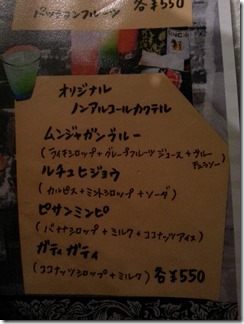 パッションフルーツ 各¥550
オリジナル
ノンアルコールカクテル
ムンジャガンブルー
(ライチシロップ+グレープフルーツジュース+ブルーキュラソー)
ルチュヒジョウ
(カルピス+ミントシロップ+ソーダ)
ピサンミンピ
(バナナシロップ+ミルク+ココナッツアイス)
ガティガティ
(ココナッツシロップ+ミルク) 各¥550